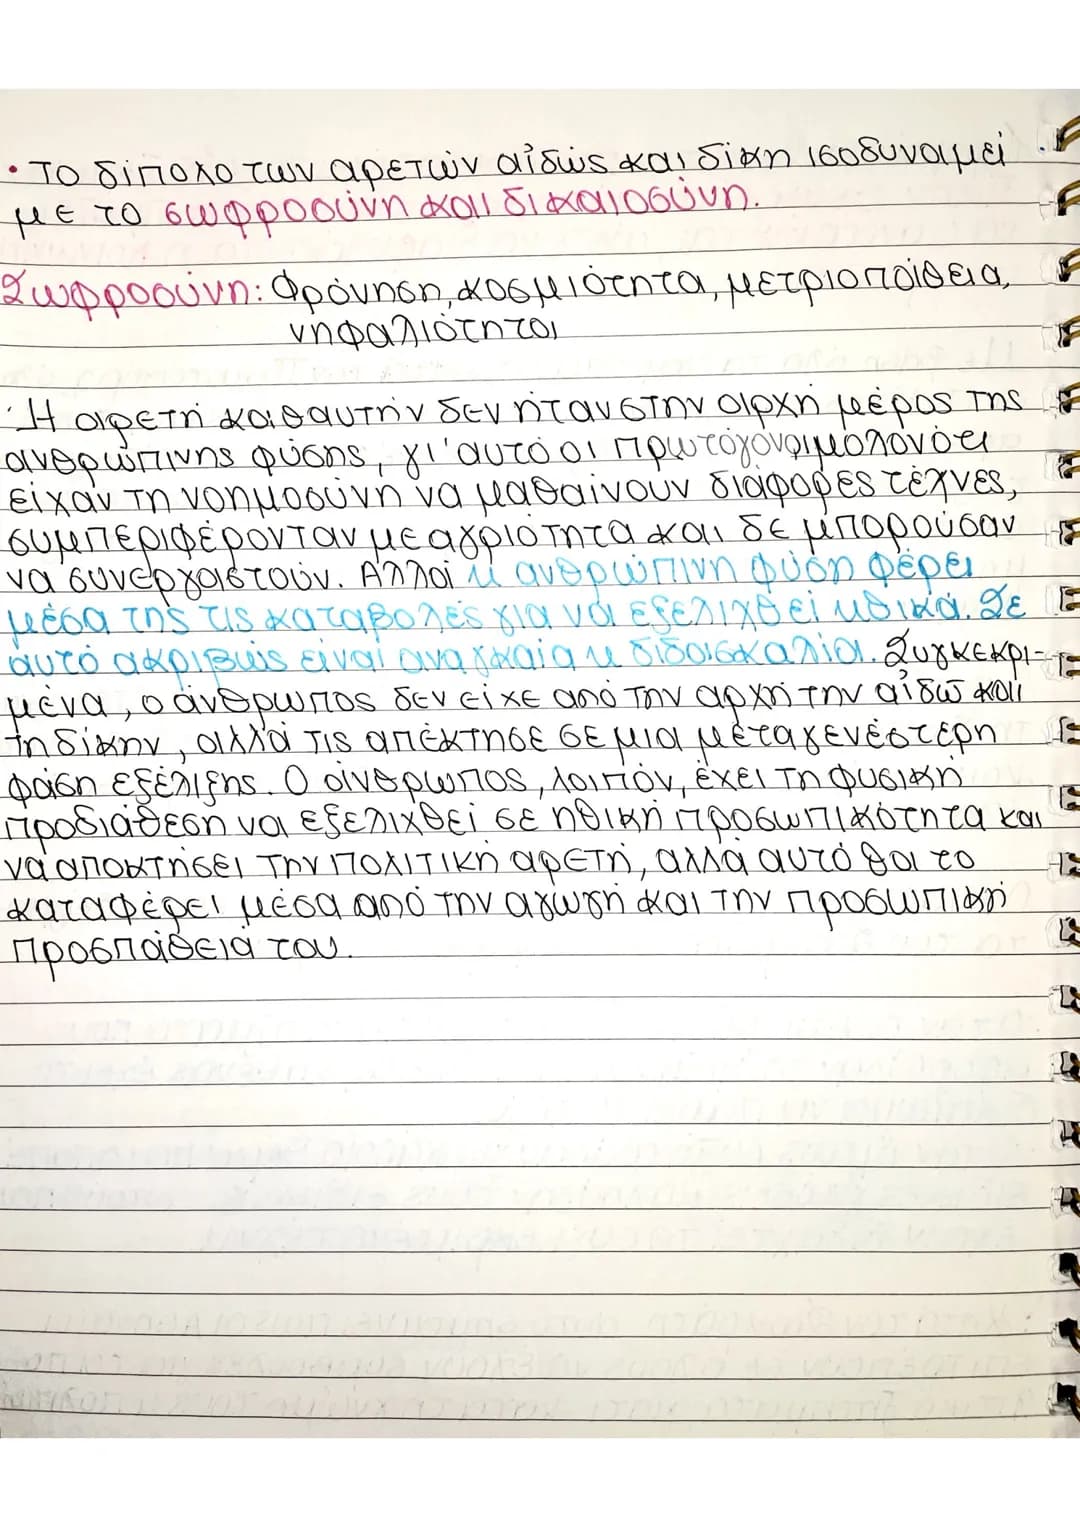 • Το δίπολο των αρετών αἰδώς και δίκη ισοδυναμεί
με το σωφροσύνη και δικαιοσύνη.
Σωφροσύνη: Φρόνηση, κοσμιότητα, μετριοπάθεια,
νηφαλιότητα
· Η αρετή καθαυτήν δεν ήταν στην αρχή μέρος της
ανθρώπινης φύσης, γι'αυτό οι πρωτόγονοι μολονότι
είχαν τη νοημοσύνη να μαθαίνουν διάφορες τέχνες,
συμπεριφέρονταν με αγριότητα και δε μπορούσαν
να συνεργαστούν. Αλλά η ανθρώπινη φύση φέρει
μέσα της τις καταβολές για να εξελιχθεί ηθικά. Σε
αυτό ακριβώς είναι αναγκαία η διδασκαλία. Συγκεκρι-
μένα, ο άνθρωπος δεν είχε από την αρχή την αἰδῶ και
τη δίκην, αλλά τις απέκτησε σε μια μεταγενέστερη
φάση εξέλιξης. Ο άνθρωπος, λοιπόν, έχει τη φυσική
προδιάθεση να εξελιχθεί σε ηθική προσωπικότητα και
να αποκτήσει την πολιτική αρετή, αλλά αυτό θα το
καταφέρει μέσα από την αγωγή και την προσωπική
προσπάθειά του.